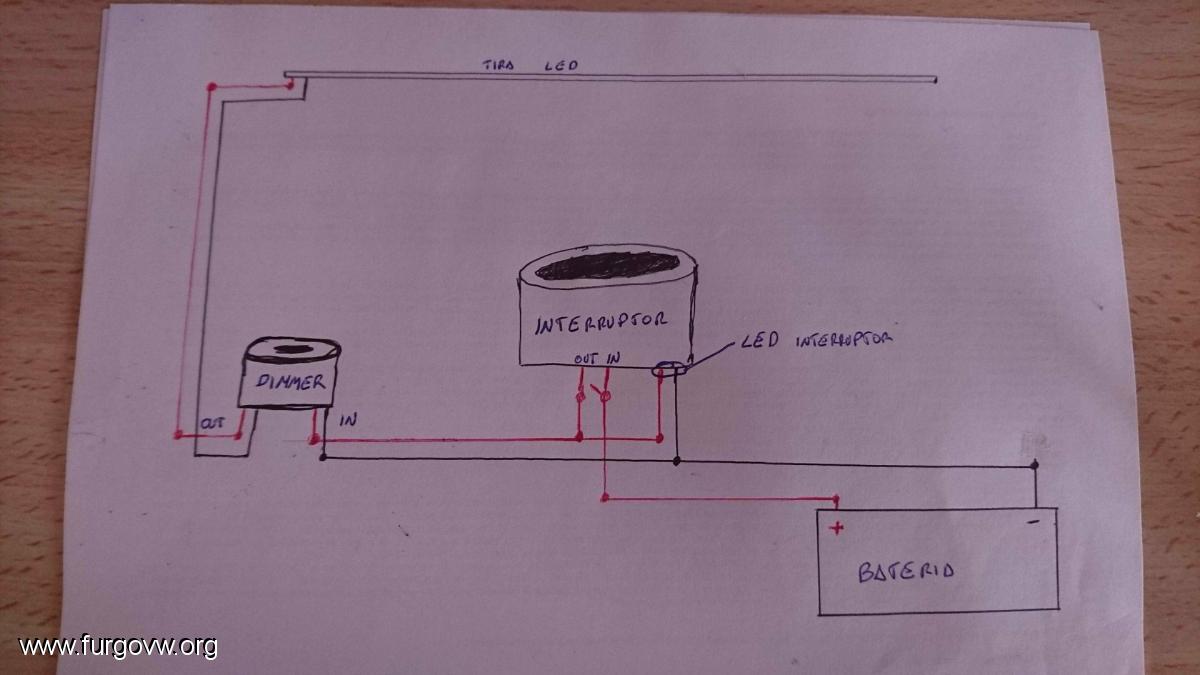 TIRA LED
INTERRUPTOR
OUT IN
LED INTERRUPTOR
DIMMER
OUT
IN
+
-
BATERIA
www.furgovw.org